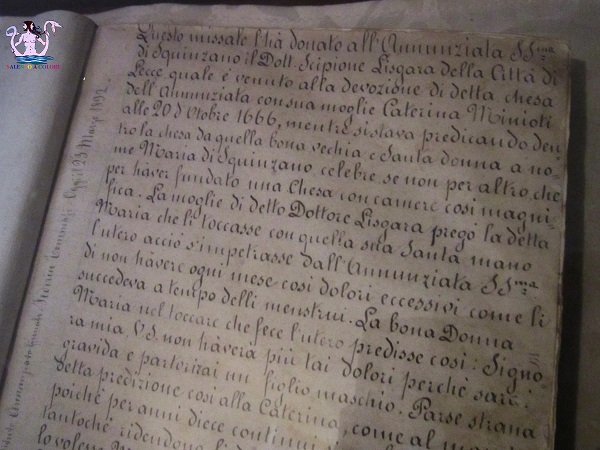 Questo missale l'hà donato all'Annunziata SS.ma
di Squinzano il Dott. Scipione Lisgara della Città di
Lecce quale è venuto alla devozione di detta chesa
dell'Annunziata con sua moglie Caterina Minioti
alle 20 d'Ottobre 1666, mentre si stava predicando den=
tro la chesa da quella bona vechia e santa donna a no=
me Maria di Squinzano, celebre, se non per altro, che
per hàver fundato una Chesa con camere così magni=
fica. La moglie di detto Dottore Lisgara pregò la detta
Maria che li toccasse con quella sua santa mano
l'utero acciò s'impetrasse dall'Annunziata SS.ma
di non hàvere ogni mese così dolori eccessivi come li
succedeva a tempo delli menstrui. La bona Donna
Maria nel toccare che fece l'utero predisse così: Signo=
ra mia, V.S. non hàverà più tai dolori perchè sarà
gravida e parturirai un figlio maschio. Parse strana
detta predizione così alla Caterina, come al
poichè per anni diece continui
tantochè ridendono
lo
Oggi il 25 Marzo 1892
SALENTO A COLORI